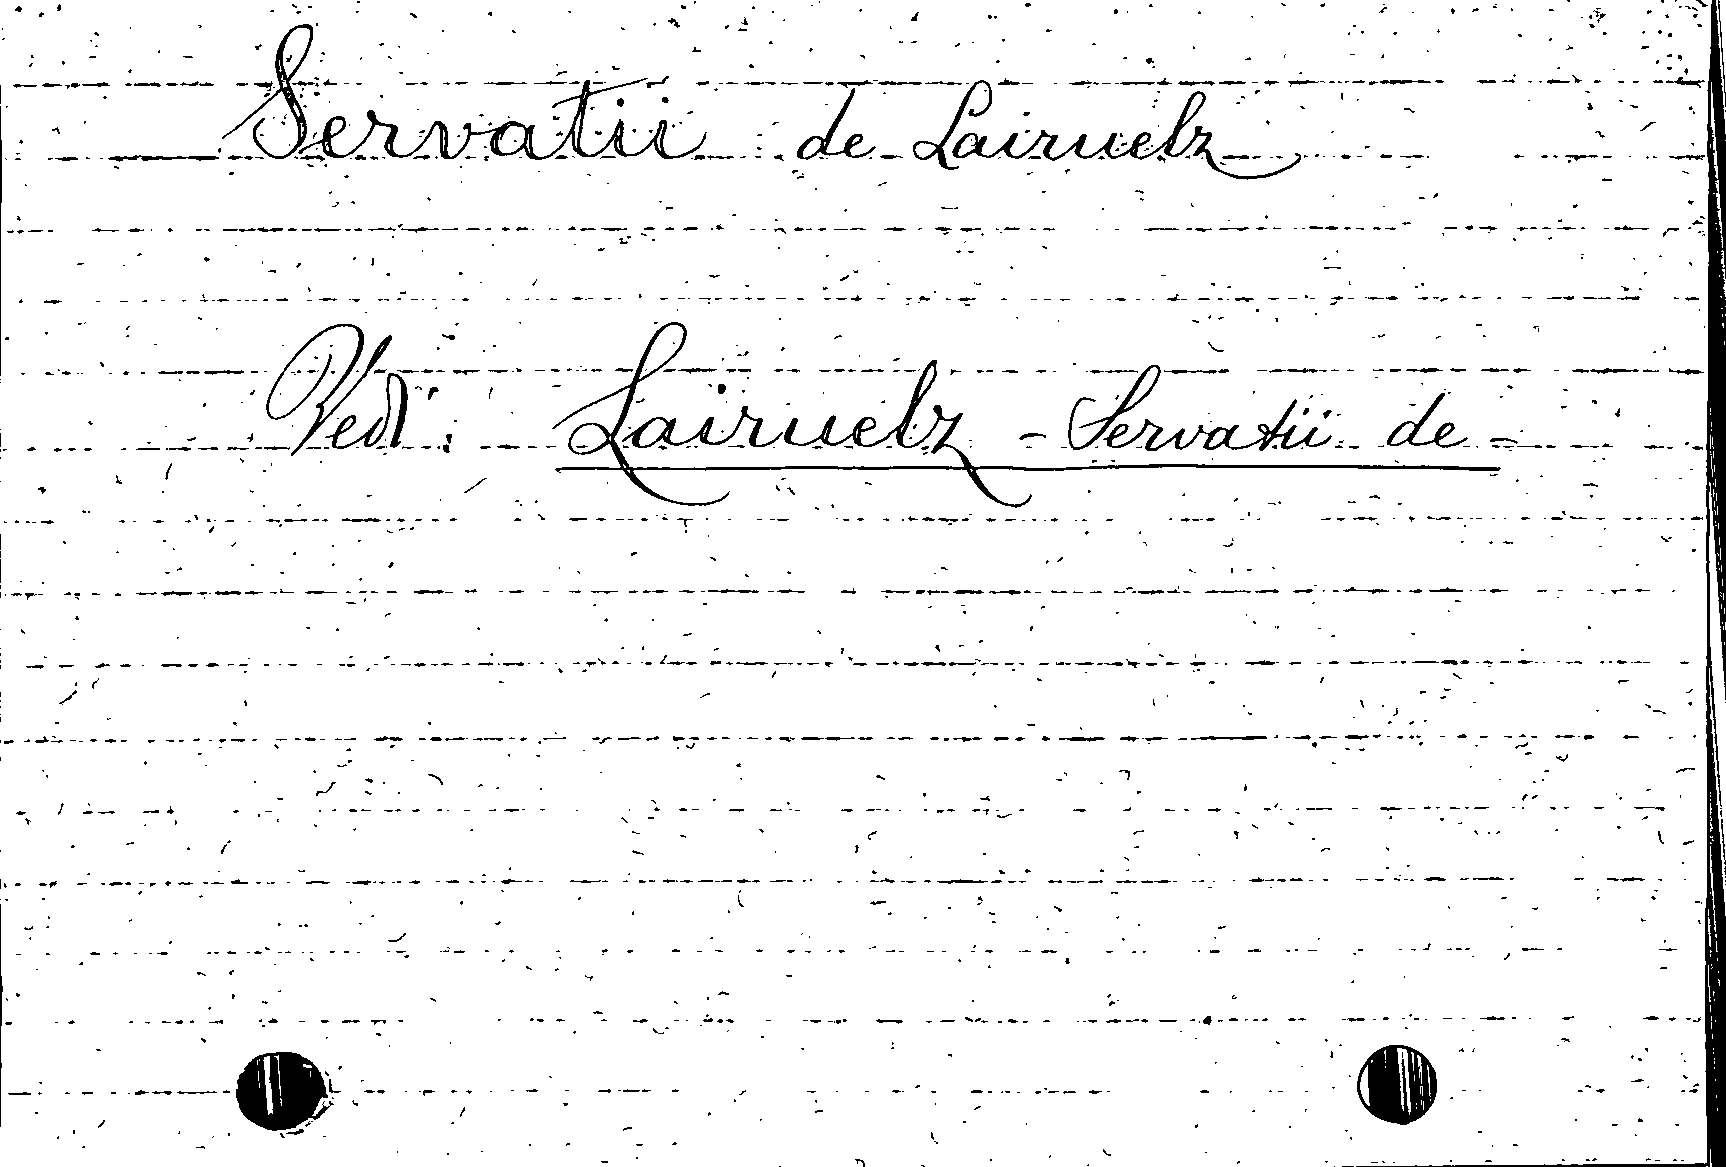 Servatii de Lairuelz
Vedi: Lairuelz - Servatii de -